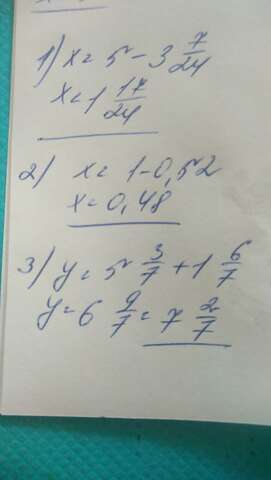 1) x = 5 - 3 7/24
x = 1 17/24
2) x = 1 - 0,52
x = 0,48
3) y = 5 3/7 + 1 6/7
y = 6 9/7 = 7 2/7